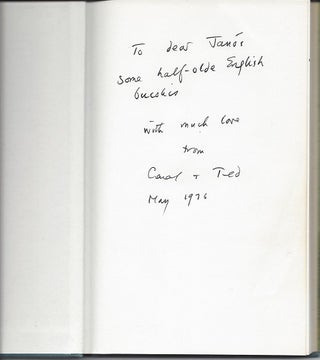 To dear János
some half-olde English
with much love
from
Carol + Ted
May 1976